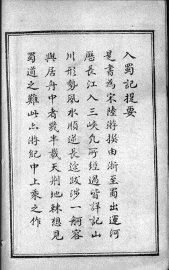 入蜀記提要
是書為宋陸游撰由浙至蜀出運河
歷長江入三峽凡所經過皆詳記山
川形勢風水順逆長途跋涉一舸容
與居舟中者幾半載天荆地棘想見
蜀道之難此亦游紀中上乘之作